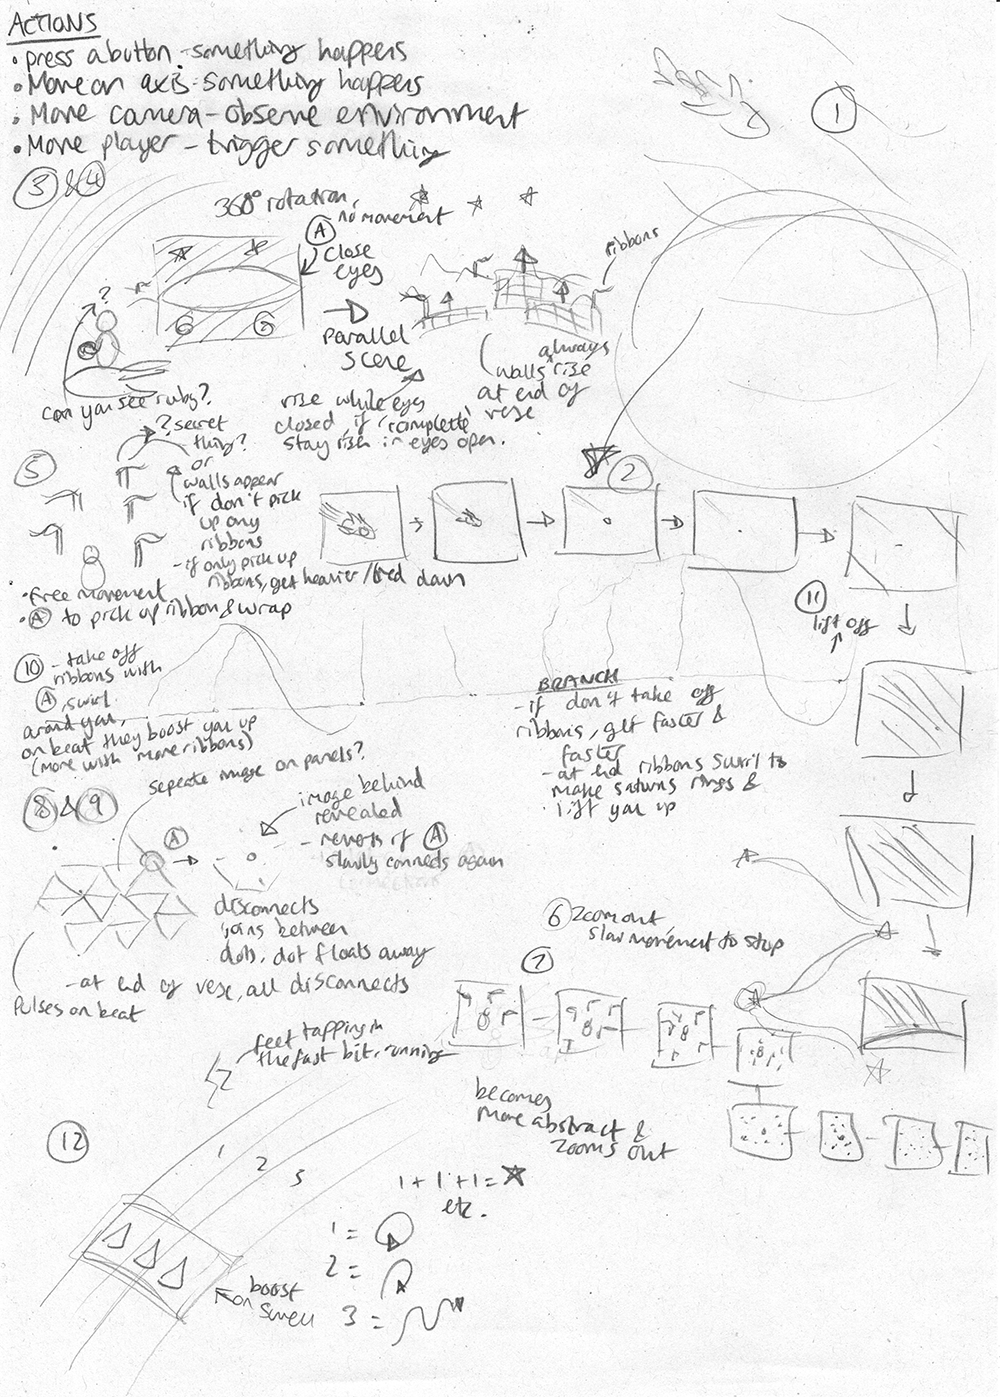 ACTIONS
• press a button - something happens
• Move on axis - something happens
• Move camera - observe environment
• Move player - trigger something
1
3 & 4
360° rotation,
no movement
A
close
eyes
ribbons
?
Parallel
scene
always
walls rise
at end of
verse
can you see ruby?
rise while eyes
closed, if 'complete'
stay risen in eyes open.
5
? secret
thing?
or
walls appear
if don't pick
up any
ribbons
- if only pick up
ribbons, get heavier / tied down
• Free movement
• A to pick up ribbon & wrap
2
11
lift off
10 - take off
ribbons with
A, swirl
around you,
on beat they boost you up
(more with more ribbons)
BRANCH
- if don't take off
ribbons, get faster &
faster
- at end ribbons swirl to
make saturns rings &
lift you up
seperate image on panels?
8 & 9
A
image behind
revealed
- reworks if A
slowly connects again
disconnects
joins between
dots, dot floats away
- at end of verse, all disconnects
Pulses on beat
6 Zoom out
slow movement to stop
7
becomes
more abstract &
zooms out
feet tapping in
the fast bit, running
12
1 2 3
1 + 1 + 1 =
etc.
1 =
2 =
3 =
boost
For swell